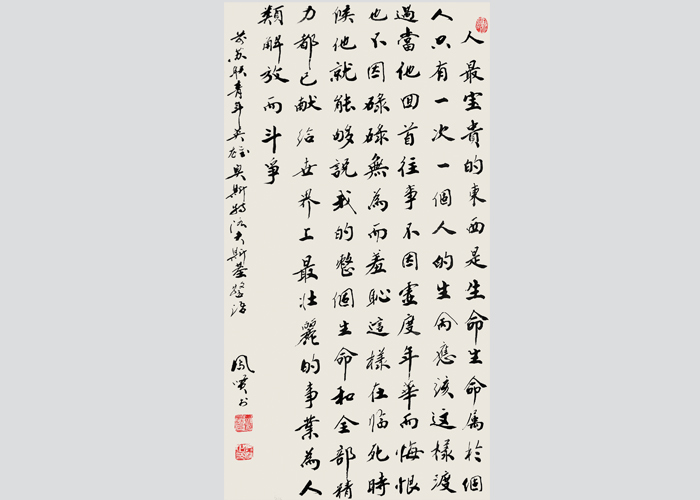 人最宝貴的東西是生命生命属於個
人只有一次一個人的生命應該这樣渡
過當他回首往事不因虚度年華而悔恨
也不因碌碌無為而羞恥這樣在临死時
候他就能够説我的整個生命和全部精
力都已献给世界上最壮麗的事業為人
類解放而斗爭
苏联青年英雄奥斯特洛夫斯基警语